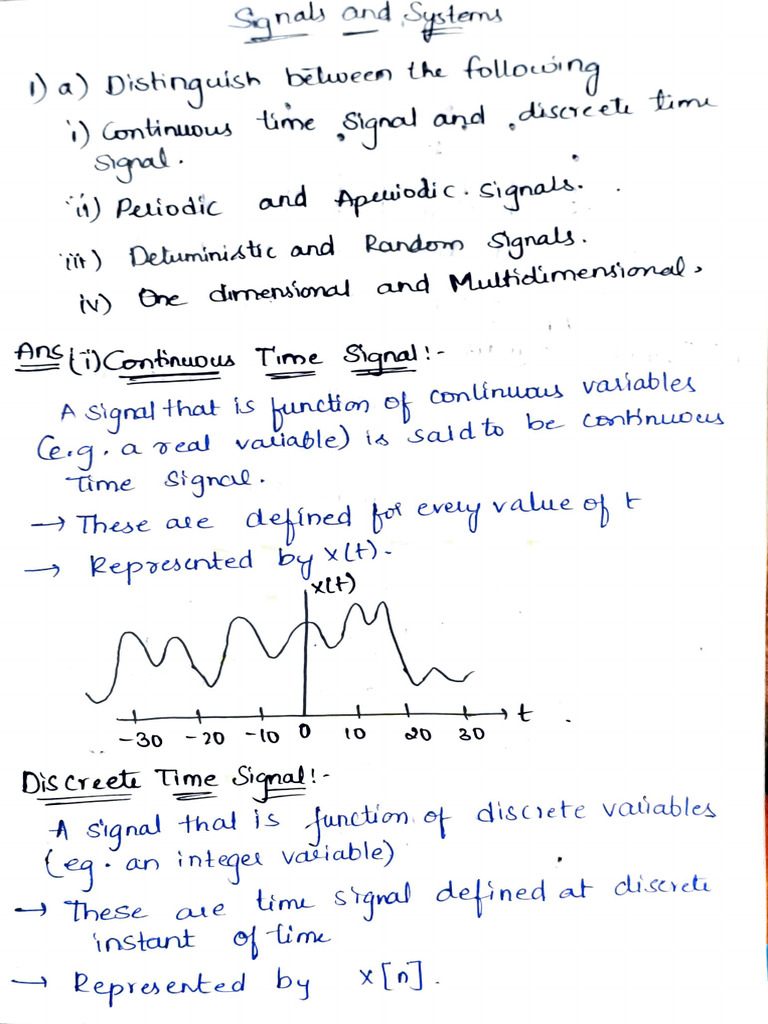 Signals and Systems
1) a) Distinguish between the following
i) Continuous time signal and discreete time
signal.
ii) Periodic and Aperiodic signals.
iii) Deterministic and Random signals.
iv) One dimensional and Multidimensional.
Ans (i) Continuous Time Signal:-
A signal that is function of continuous variables
(e.g. a real variable) is said to be continuous
time signal.
→ These are defined for every value of t
→ Represented by x(t).
x(t)
t
-30 -20 -10 0 10 20 30
Discreete Time Signal:-
A signal that is function of discrete variables
(eg. an integer variable)
→ These are time signal defined at discrete
instant of time
→ Represented by x[n].